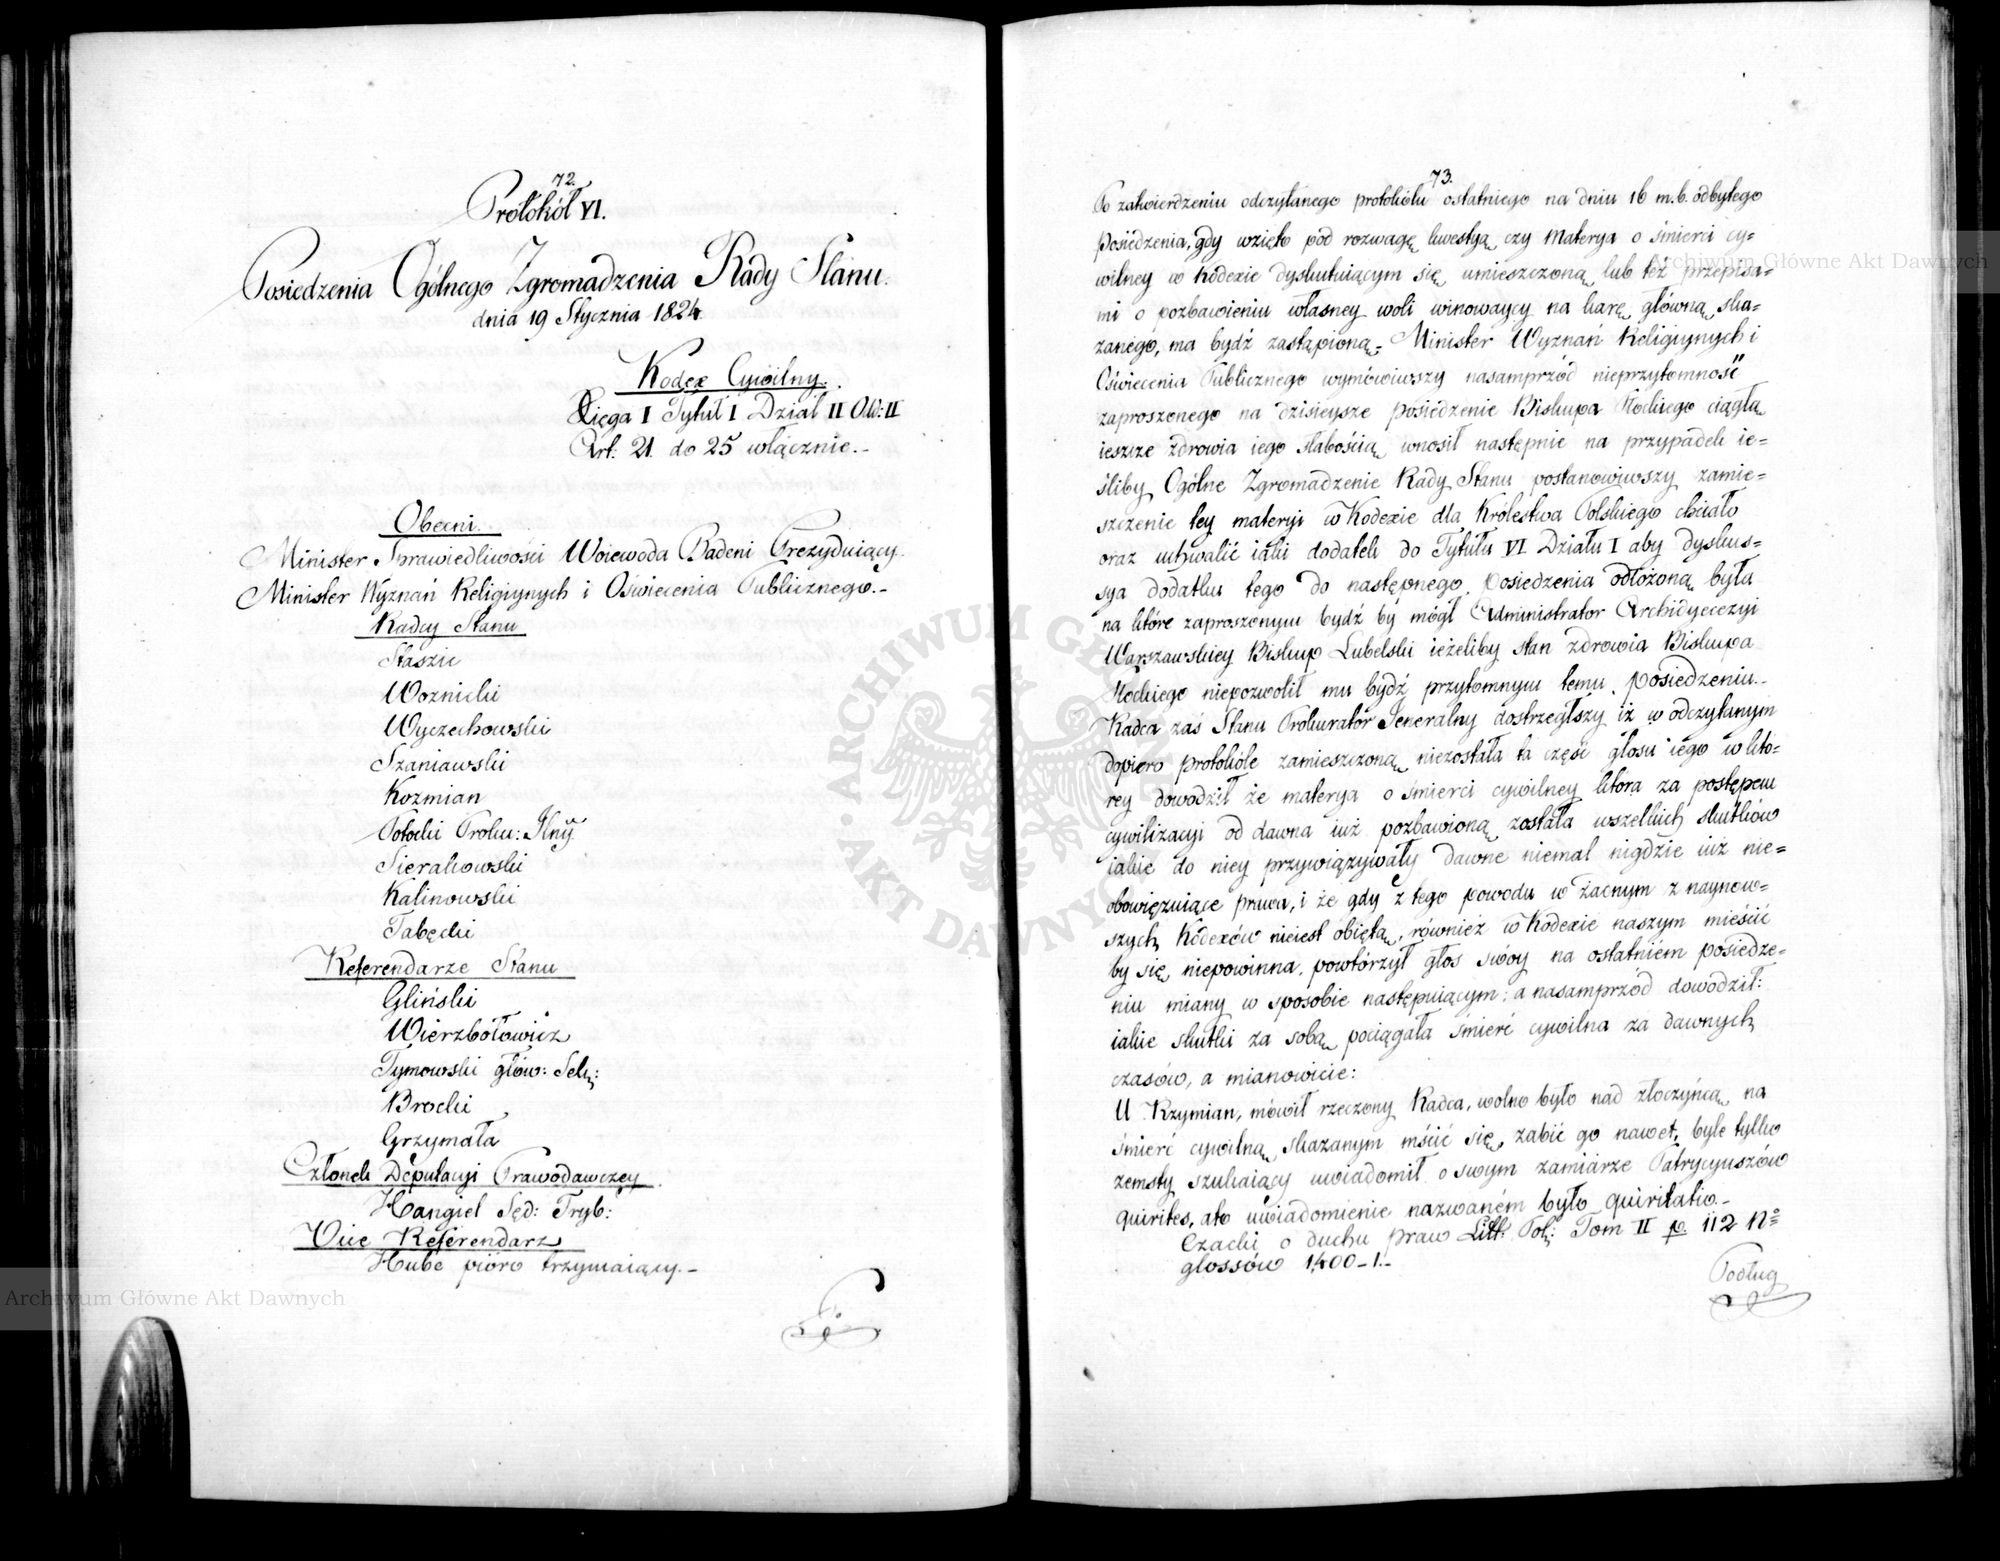 72.
Protokół VI.
Posiedzenia Ogólnego Zgromadzenia Rady Stanu.
dnia 19 Stycznia 1824
Kodex Cywilny.
Xięga I Tytuł I Dział II Od: II
Art: 21. do 25 włącznie.-
Obecni.
Minister Sprawiedliwości Woiewoda Badeni Prezyduiący.
Minister Wyznań Religiynych i Oświecenia Publicznego.-
Radcy Stanu
Staszic
Woznicki
Wyczechowski
Szaniawski
Kozmian
Potocki Proku: Jlny
Sierakowski
Kalinowski
Tabęcki
Referendarze Stanu
Gliński
Wierzbołowicz
Tymowski głów: Sek:
Brocki
Grzymała
Członek Deputacyi Prawodawczey.
Hangiel Sęd: Tryb:
Vice Referendarz
Hube pióro trzymaiący.-
73.
Po zatwierdzeniu odczytanego protokółu ostatniego na dniu 16 m.b. odbytego
posiedzenia, gdy wzięto pod rozwagę kwestyą czy materya o śmierci cy=
wilney w Kodexie dyskutuiącym się umieszczoną lub też przepisa=
mi o pozbawieniu własney woli winowaycy na karę główną ska=
zanego, ma bydź zastąpioną; Minister Wyznań Religiynych i
Oświecenia Publicznego wymówiwszy nasamprzód nieprzytomność
zaproszonego na dzisieysze posiedzenie Biskupa Płockiego ciągłą
ieszcze zdrowia iego słabością wnosił następnie na przypadek ie=
śliby Ogólne Zgromadzenie Rady Stanu postanowiwszy zamie=
szczenie tey materyi w Kodexie dla Królestwa Polskiego chciało
oraz uchwalić iaki dodatek do Tytułu VI Działu I aby dyskus=
sya dodatku tego do następnego posiedzenia odłożoną była
na które zaproszonym bydź by mógł Administrator Archidyecezyi
Warszawskiey Biskup Lubelski ieżeliby stan zdrowia Biskupa
Płockiego niepozwolił mu bydź przytomnym temu posiedzeniu.-
Radca zaś Stanu Prokurator Jeneralny dostrzegłszy iż w odczytanym
dopiero protokóle zamieszczoną niezostała ta część głosu iego w któ=
rey dowodził że materya o śmierci cywilney która za postępem
cywilizacyi od dawna iuż pozbawioną została wszelkich skutków
iakie do niey przywiązywały dawne niemal nigdzie iuż nie=
obowięzuiące prawa, i że gdy z tego powodu w żadnym z naynow=
szych Kodexów nieiest obiętą, również w Kodexie naszym mieścić
by się niepowinna, powtórzył głos swóy na ostatniem posiedze=
niu miany w sposobie następuiącym: a nasamprzód dowodził:
iakie skutki za sobą pociągała śmierć cywilna za dawnych
czasów, a mianowicie:
U Rzymian, mówił rzeczony Radca, wolno było nad złoczyńcą na
śmierć cywilną skazanym mścić się, zabić go nawet, byle tylko
zemsty szukaiący uwiadomił o swym zamiarze Patrycyuszów
quirites, a to uwiadomienie nazwaném było quiritatio.-
Czacki o duchu praw Litt: Pol: Tom II p 112 No
glossów 1,400-1.-
Podług